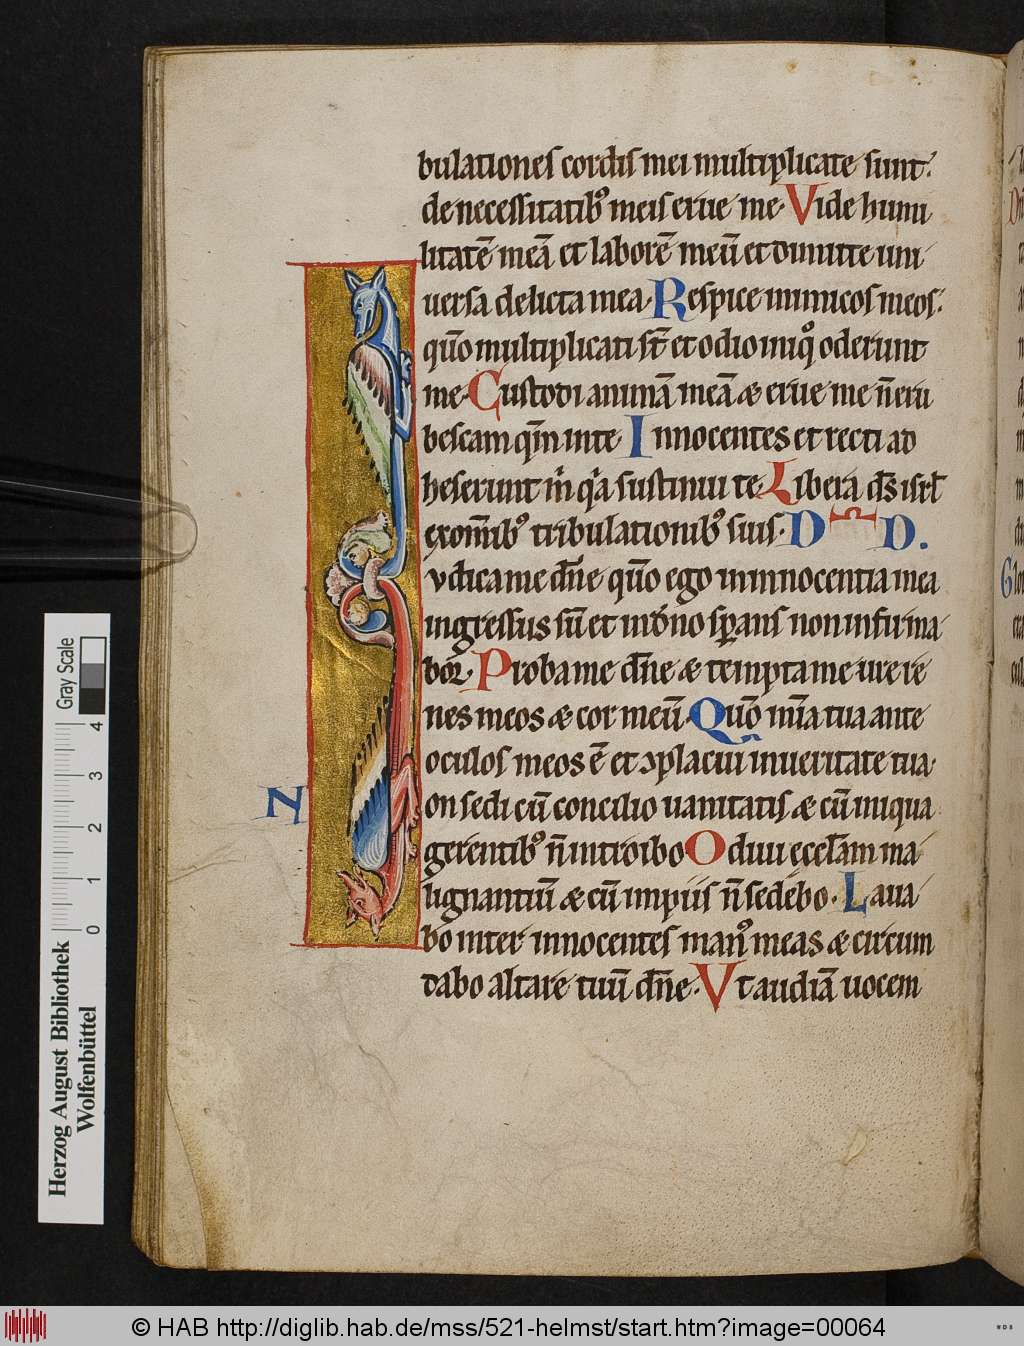 bulationes cordis mei multiplicate sunt
de necessitatibꝰ meis erue me. Vide humi
litatē meā et laborē meū et dimitte uni
uersa delicta mea. Respice inimicos meos
qūo multiplicati st̄ et odio iniqͦ oderunt
me. Custodi animā meā & erue me n̄ eru
bescam qm̄ in te Innocentes et recti ad
heserunt m̄ qͥa sustinui te. Libera ds̄ isrl̄
ex om̄ibꝰ tribulationibꝰ suis. D D.
vdica me dn̄e qūo ego in innocentia mea
ingressus sū et in dn̄o sꝑans non infirma
bor. Proba me dn̄e & tempta me ure re
nes meos & cor meū. Qūo mīa tua ante
oculos meos ē et ↄplacui in ueritate tua.
N on sedi cū concilio uanitatis & cū iniqua
gerentibꝰ n̄ introibo Odiui ęccl̄am ma
lignantiū & cū impiis n̄ sedebo. Laua
bo inter innocentes manꝰ meas & circum
dabo altare tuū dn̄e. Vt audiā uocem
Herzog August Bibliothek
Wolfenbüttel
0 1 2 3 4
Gray Scale
© HAB http://diglib.hab.de/mss/521-helmst/start.htm?image=00064